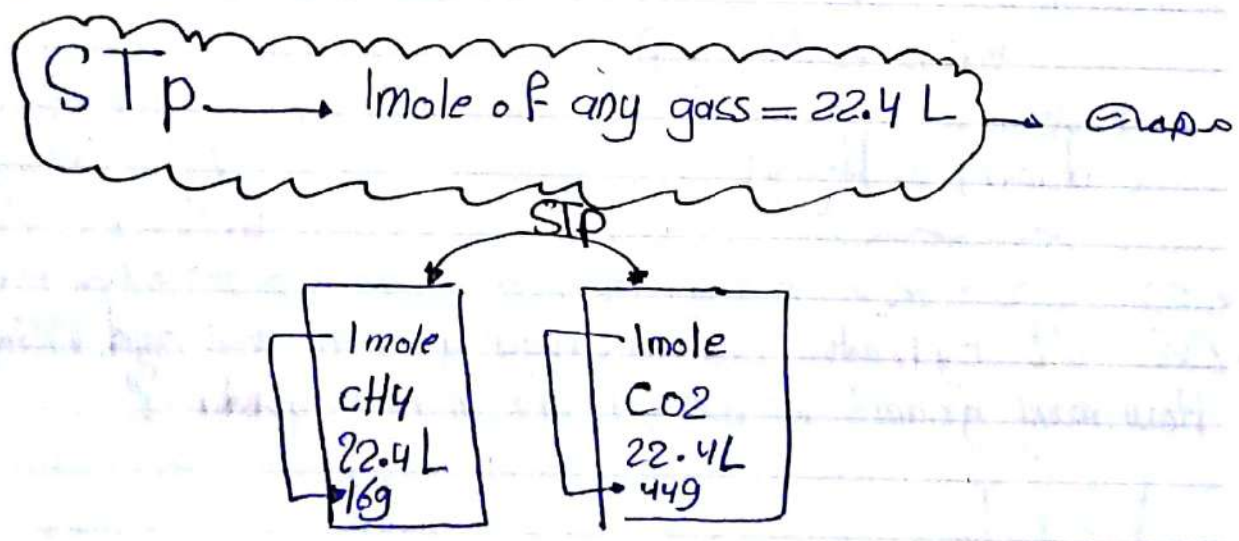 STp → 1mole of any gass = 22.4 L →
STP
1mole
CH4
22.4L
16g
1mole
CO2
22.4L
44g